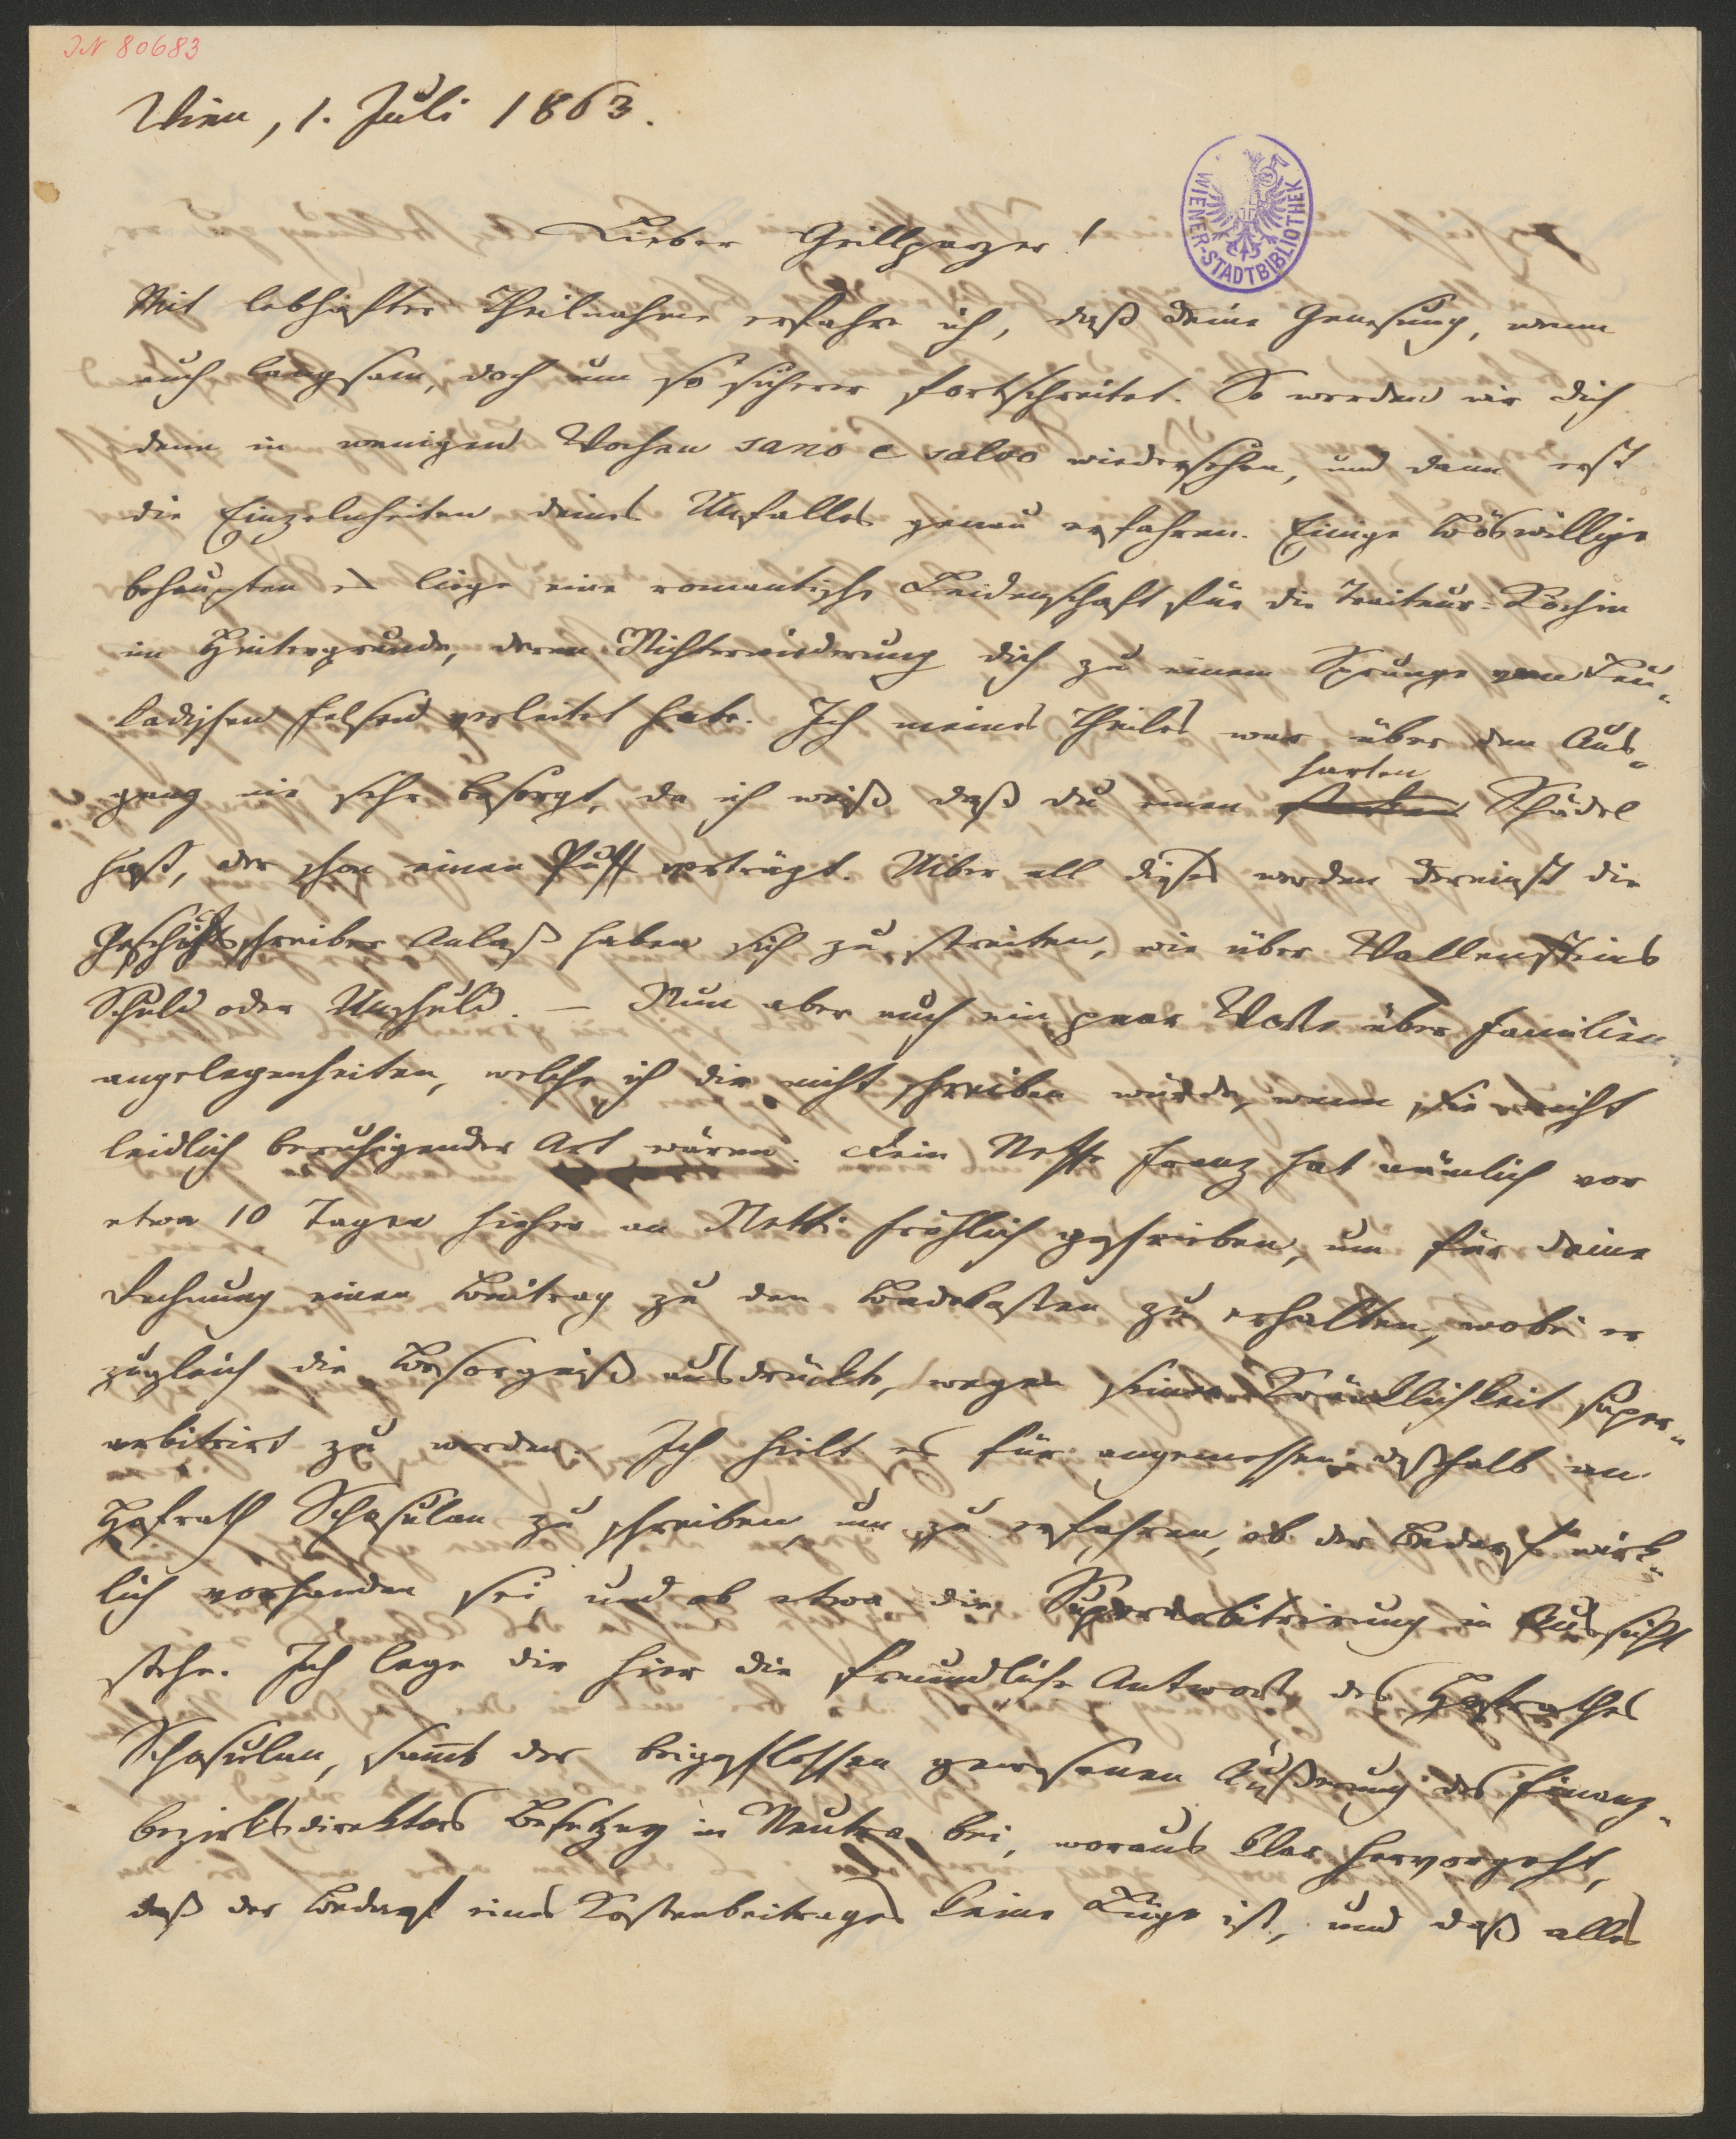 JN 80683
Wien, 1. Juli 1863.
WIENER-STADTBIBLIOTHEK
Lieber Grillparzer!
Mit lebhafter Theilnahme erfahre ich, daß deine Genesung, wenn
auch langsam, doch um so sicherer fortschreitet. So werden wir dich
denn in wenigen Wochen sano e salvo wiedersehen, und dann erst
die Einzelnheiten deines Unfalles genau erfahren. Einige Böswillige
behaupten es liege eine romantische Leidenschaft für die Traiteur-Köchin
im Hintergrunde, deren Nichterwiederung dich zu einem Sprunge vom Leu-
kadischen Felsen verleitet habe. Ich meines Theiles war über den Aus-
gang nie sehr besorgt, da ich weiß daß du einen harten Schädel
hast, der schon einen Puff verträgt. Über all dieses werden dereinst die
Geschichtschreiber Anlaß haben sich zu streiten, wie über Wallensteins
Schuld oder Unschuld. — Nun aber auch ein paar Worte über Familien-
angelegenheiten, welche ich dir nicht schreiben würde, wenn sie nicht
leidlich beruhigender Art wären. Dein Neffe Franz hat nämlich vor
etwa 10 Tagen hieher an Netti Fröhlich geschrieben, um für deine
Rechnung einen Beitrag zu den Badekosten zu erhalten, wobei er
zugleich die Besorgniß ausdrückte, wegen seiner Kränklichkeit super-
arbitrirt zu werden. Ich hielt es für angemessen deßhalb an
Hofrath Schosulan zu schreiben, um zu erfahren, ob der Bedarf wirk-
lich vorhanden sei, und ob etwa die Superarbitrirung in Aussicht
stehe. Ich lege dir hier die freundliche Antwort des Hofrathes
Schosulan, sammt der beigeschlossen gewesenen Äußerung des Finanz-
bezirksdirektors in Neutra bei, woraus klar hervorgeht,
daß der Bedarf eines Kostenbeitrages keine Lüge ist, und daß alles